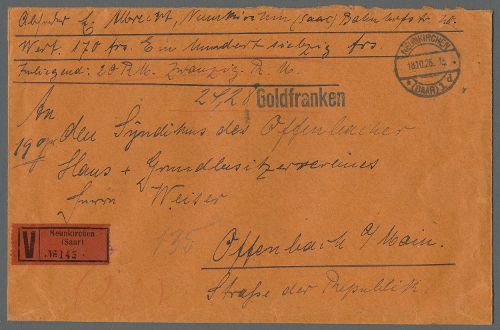 Absender E. Albrecht, Neunkirchen (Saar) Bahnhofstr.
Wert. 170 frs. Ein hundert siebzig frs
Inliegend: 20 R.M. Zwanzig R. M.
24,28 Goldfranken
NEUNKIRCHEN
(SAAR)
An
den Syndikus des Offenbacher
Haus + Grundbesitzervereines
Herrn Weiser
V
Neunkirchen
(Saar)
№ 145
135
Offenbach a/Main.
Straße der Republik.